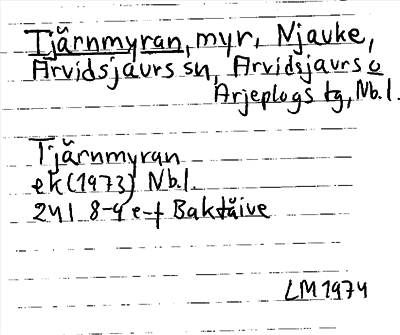 Tjärnmyran, myr, Njauke,
Arvidsjaurs sn, Arvidsjaurs o
Arjeplogs tg, Nb.l.
Tjärnmyran
ek (1973) Nb.l.
241 8-9 e-f Baktåive
LM 1974